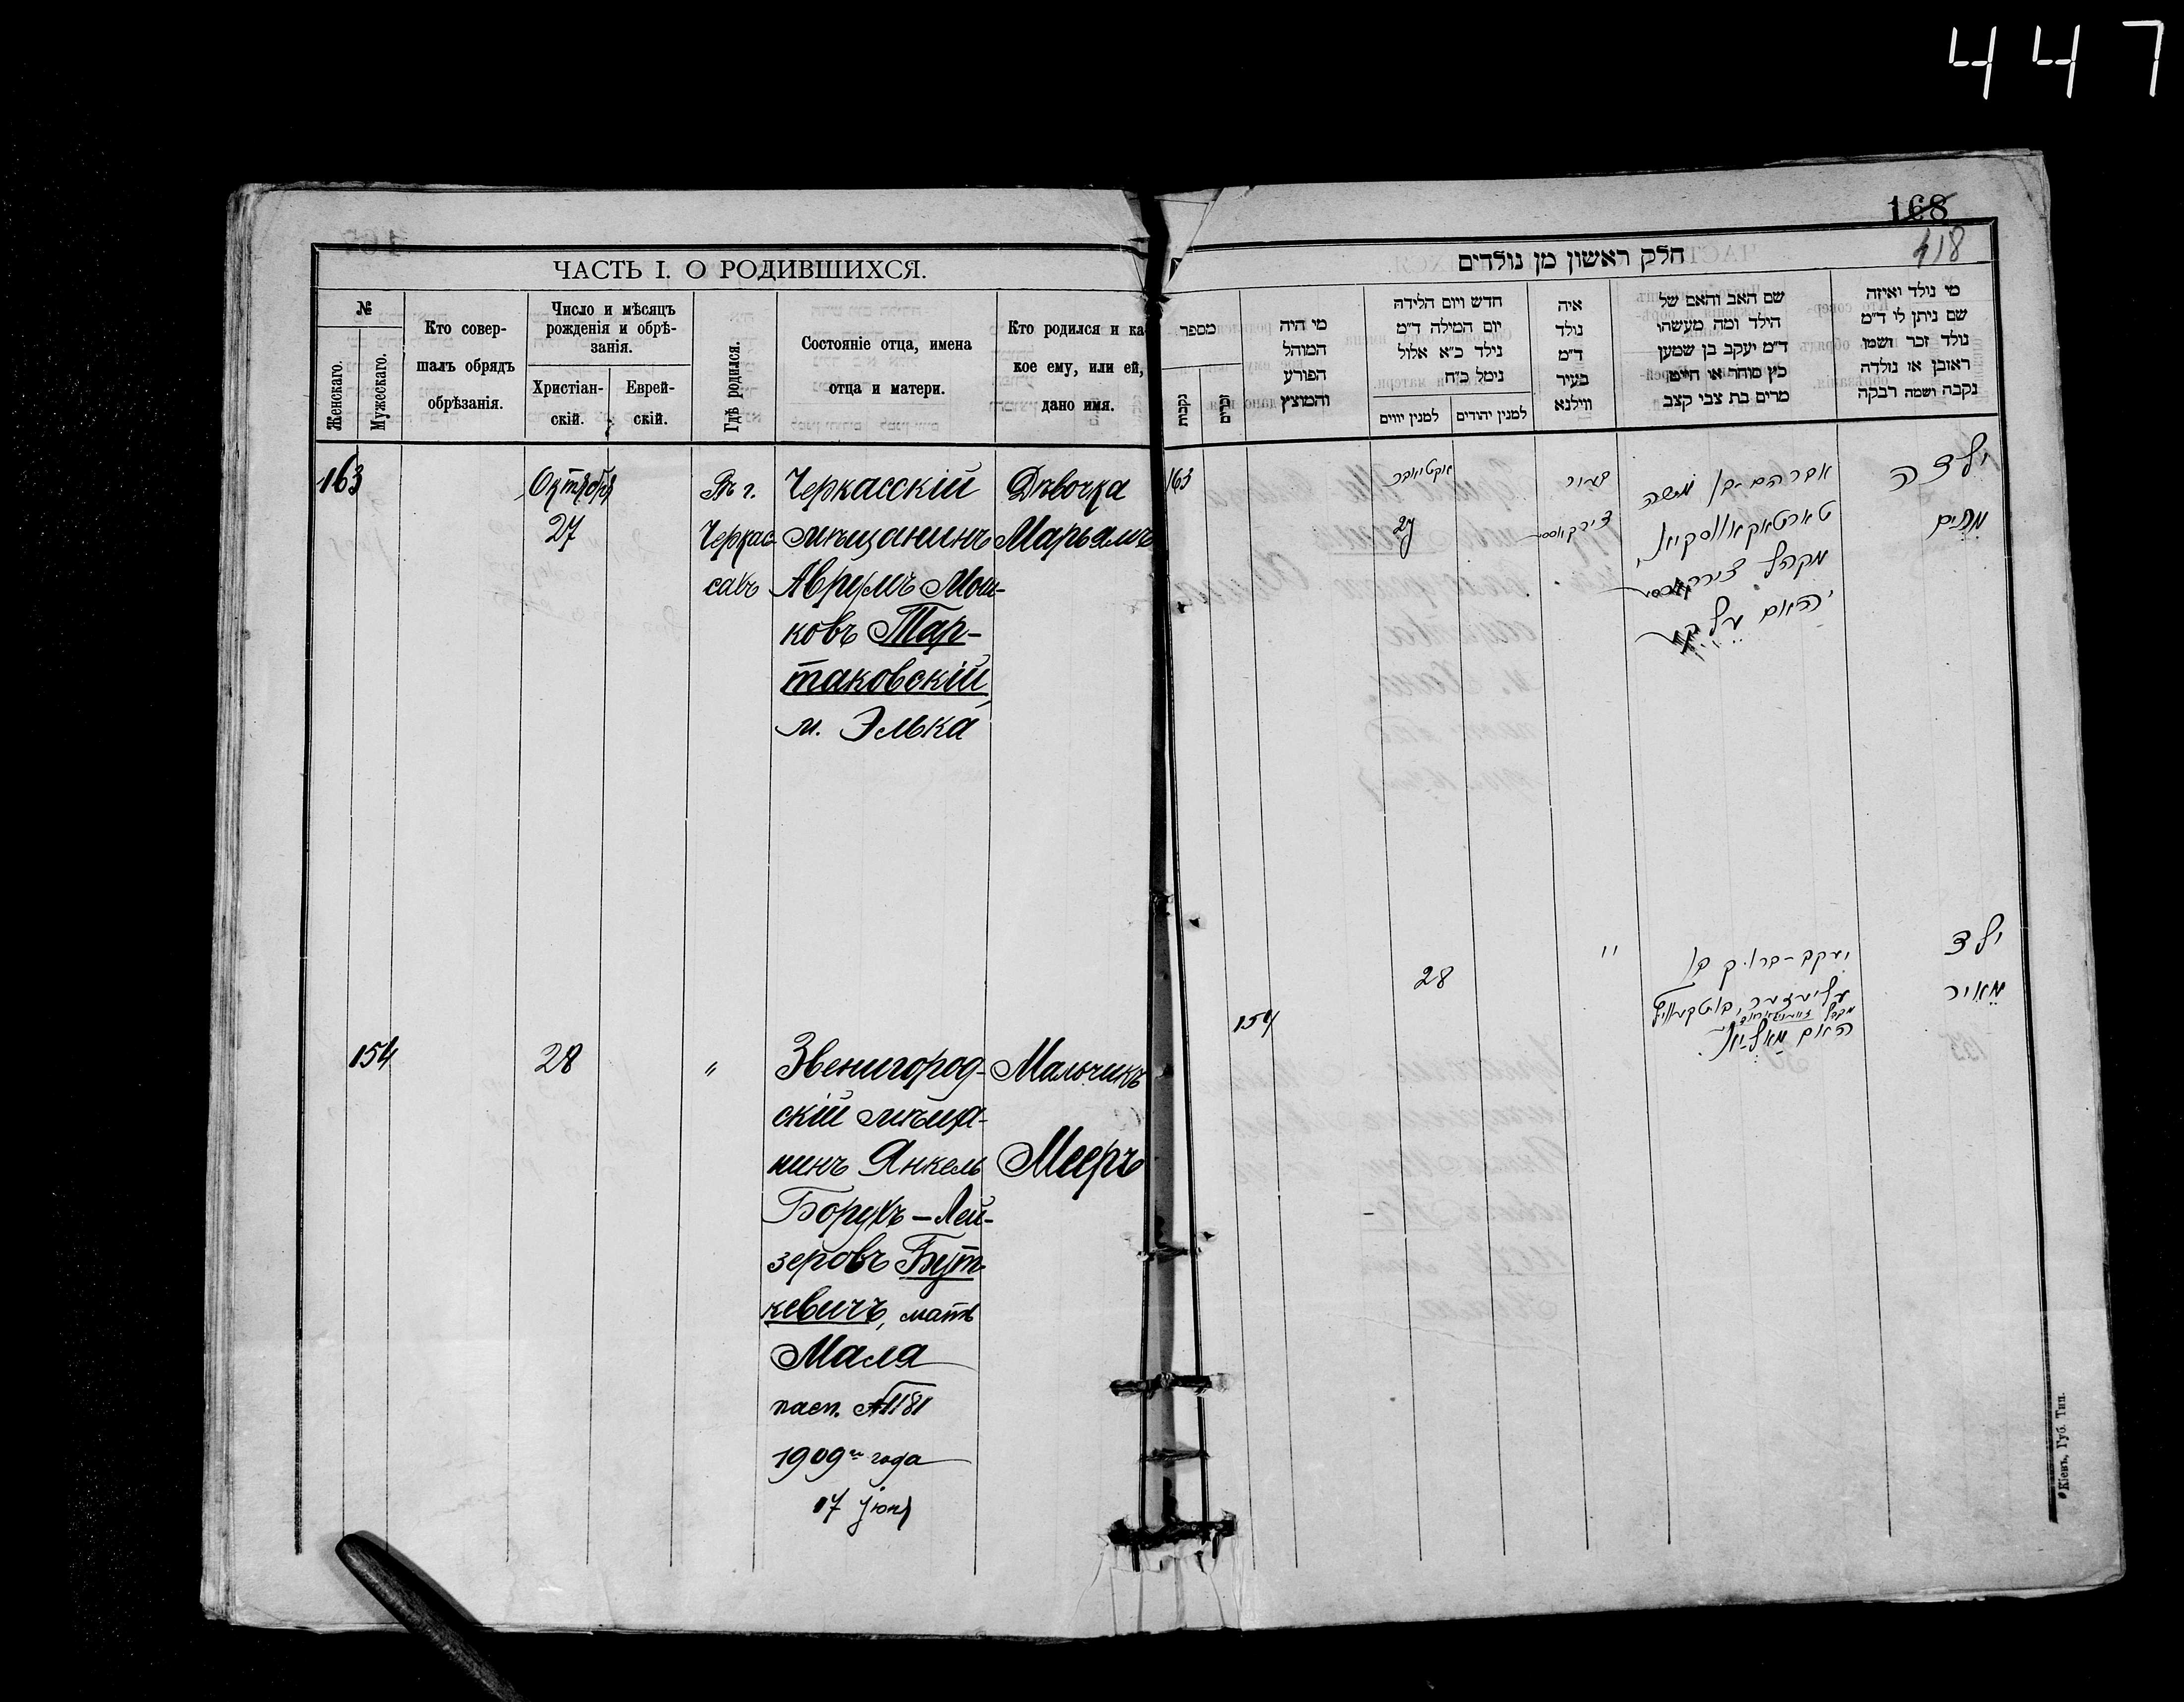 447
168
418
ЧАСТЬ I. О РОДИВШИХСЯ.
№
Женскаго.
Мужескаго.
Кто совер-
шалъ обрядъ
обрѣзанія.
Число и мѣсяцъ
рожденія и обрѣ-
занія.
Христіан-
скій.
Еврей-
скій.
Гдѣ родился.
Состояніе отца, имена
отца и матери.
Кто родился и ка-
кое ему, или ей,
дано имя.
163
Октября
27
Въ г.
Черкас-
сахъ
Черкасскій
мѣщанинъ
Аврумъ Мош-
ковъ Тар-
таковскій,
м. Элька
Дѣвочка
Марьямъ
154
28
"
Звенигород-
скій мѣща-
нинъ Янкель
Борухъ-Лей-
зеровъ Бут-
кевичъ, мать
Мала
пасп. № 1181
1909 го года
17 Іюня
Мальчикъ
Мееръ
חלק ראשון מן נולדים
מספר
נקבות
זכרים
מי היה
המוהל
הפורע
והמוצץ
חדש ויום הלידה
יום המילה ד"מ
נילד כ"א אלול
נימל כ"ח
למנין יווים
למנין יהודים
איה
נולד
ד"מ
בעיר
ווילנא
שם האב והאם של
הילד ומה מעשהו
ד"מ יעקב בן שמעון
כץ סוחר או חייט
מרים בת צבי קצב
מי נולד ואיזה
שם ניתן לו ד"מ
נולד זכר ושמו
ראובן או נולדה
נקבה ושמה רבקה
163
אקטיאבר
27
בעיר
צירקאסס
אברהם-בן משה
טארטאקאווסקיא
מקהל צירקאסס
והאם עלקע
ילדה
מרים
154
28
"
יעקב-ברוך בן
אליעזר בוטקעוויץ
מקהל
האם מאליא
ילד
מאיר
Кіевъ, Губ. Тип.